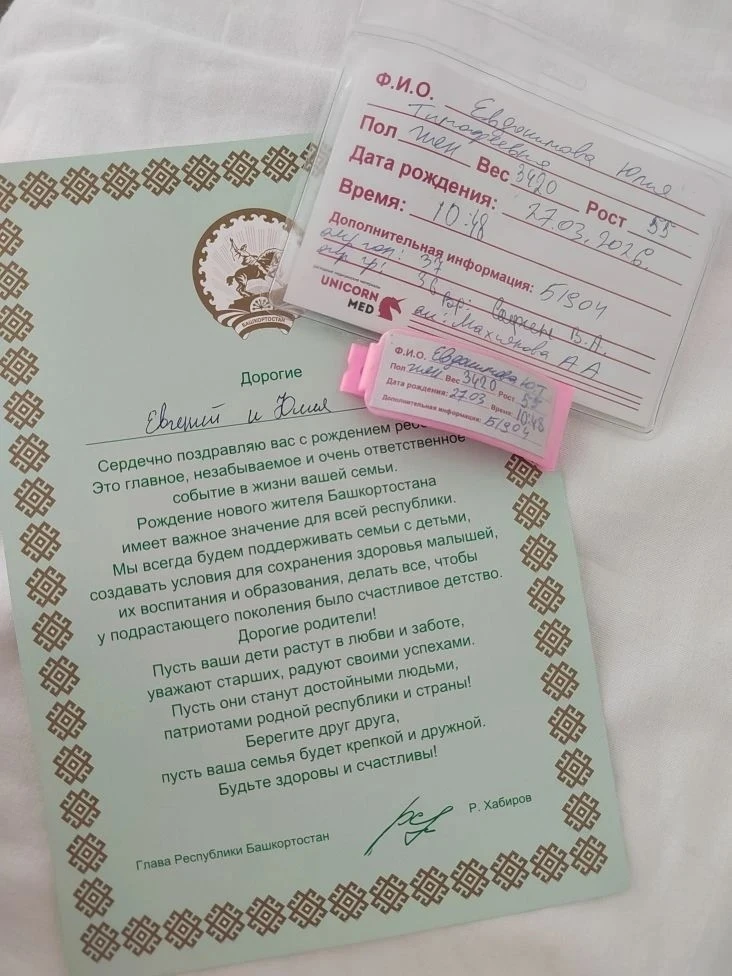 Ф.И.О. Евдокимова Юлия
Тимофеевна
Пол жен Вес 3420 Рост 55
Дата рождения: 27.03.2026.
Время: 10:48
Дополнительная информация: Б/904
окр гол: 37
окр гр: 36
В.А.
ак: Махиянова А А
UNICORN
MED
Ф.И.О. Евдокимова Ю Т
Пол жен Вес 3420 Рост 55
Дата рождения: 27.03 Время: 10:48
Дополнительная информация: Б/904
БАШКОРТОСТАН
Дорогие
Евгений и Юлия
Сердечно поздравляю вас с рождением
Это главное, незабываемое и очень ответственное
событие в жизни вашей семьи.
Рождение нового жителя Башкортостана
имеет важное значение для всей республики.
Мы всегда будем поддерживать семьи с детьми,
создавать условия для сохранения здоровья малышей,
их воспитания и образования, делать все, чтобы
у подрастающего поколения было счастливое детство.
Дорогие родители!
Пусть ваши дети растут в любви и заботе,
уважают старших, радуют своими успехами.
Пусть они станут достойными людьми,
патриотами родной республики и страны!
Берегите друг друга,
пусть ваша семья будет крепкой и дружной.
Будьте здоровы и счастливы!
Глава Республики Башкортостан Р. Хабиров